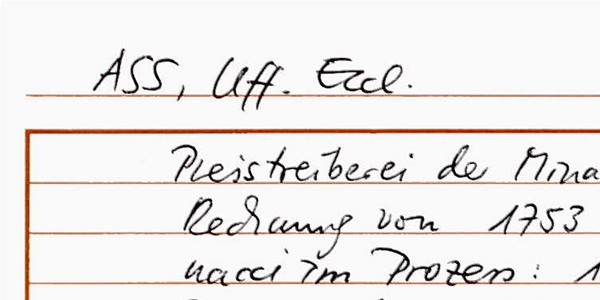 ASS, Uff. Eccl.
Preistreiberei de Mina
Rechnung von 1753
nacci im Prozess: 1